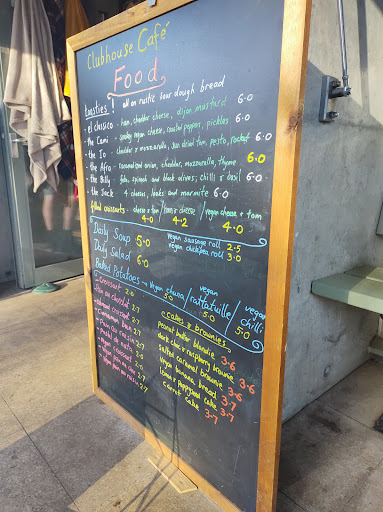 Clubhouse Café
Food
toasties! all on rustic sour dough bread
- el classico - ham, cheddar cheese, dijon mustard 6.0
- the Cami - smokey vegan cheese, roasted peppers, pickles 6.0
- the Io - cheddar & mozzarella, sun dried tom, pesto, rocket 6.0
- the Afro - caramelised onion, cheddar, mozzarella, thyme 6.0
- the Billy - feta, spinach and black olives, chilli & basil 6.0
- the Jack 4 cheeses, leeks and marmite 6.0
filled croissants - cheese & tom / ham & cheese / vegan cheese & tom
4.0 4.2 4.0
Daily Soup 5.0
vegan sausage roll 2.5
Daily Salad 6.0
vegan chickpea roll 3.0
Baked Potatoes → vegan 5.0 / vegan ratatuille / 5.0 vegan chilli 5.0
- Croissant 2.0
- Pain au chocolat 2.7
- Almond croissant 2.7
- Cinnamon bun 2.7
- Pain au raisin 2.7
- Pastel de nata 2.0
- Vegan croissant 2.0
- Vegan pain au raisin 2.7
cakes & brownies
peanut butter blondie 3.6
dark choc & raspberry brownie 3.6
salted caramel brownie 3.6
vegan banana bread 3.7
lemon & poppyseed cake 3.7
carrot cake 3.7